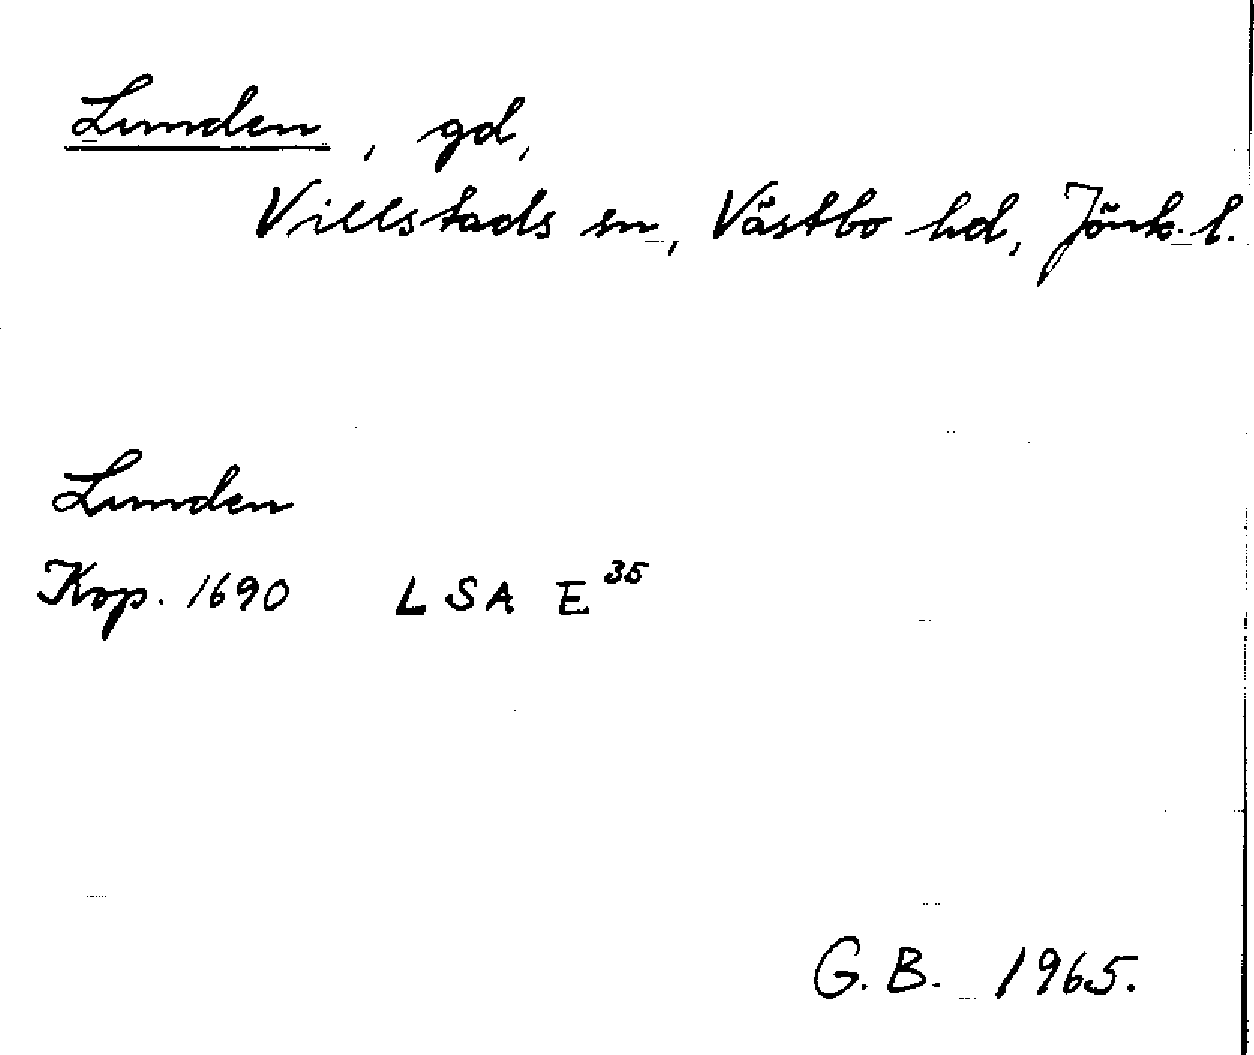 Lunden, gd,
Villstads sn, Västbo hd, Jönk. l.
Lunden
Kop. 1690 LSA E 35
G. B. 1965.